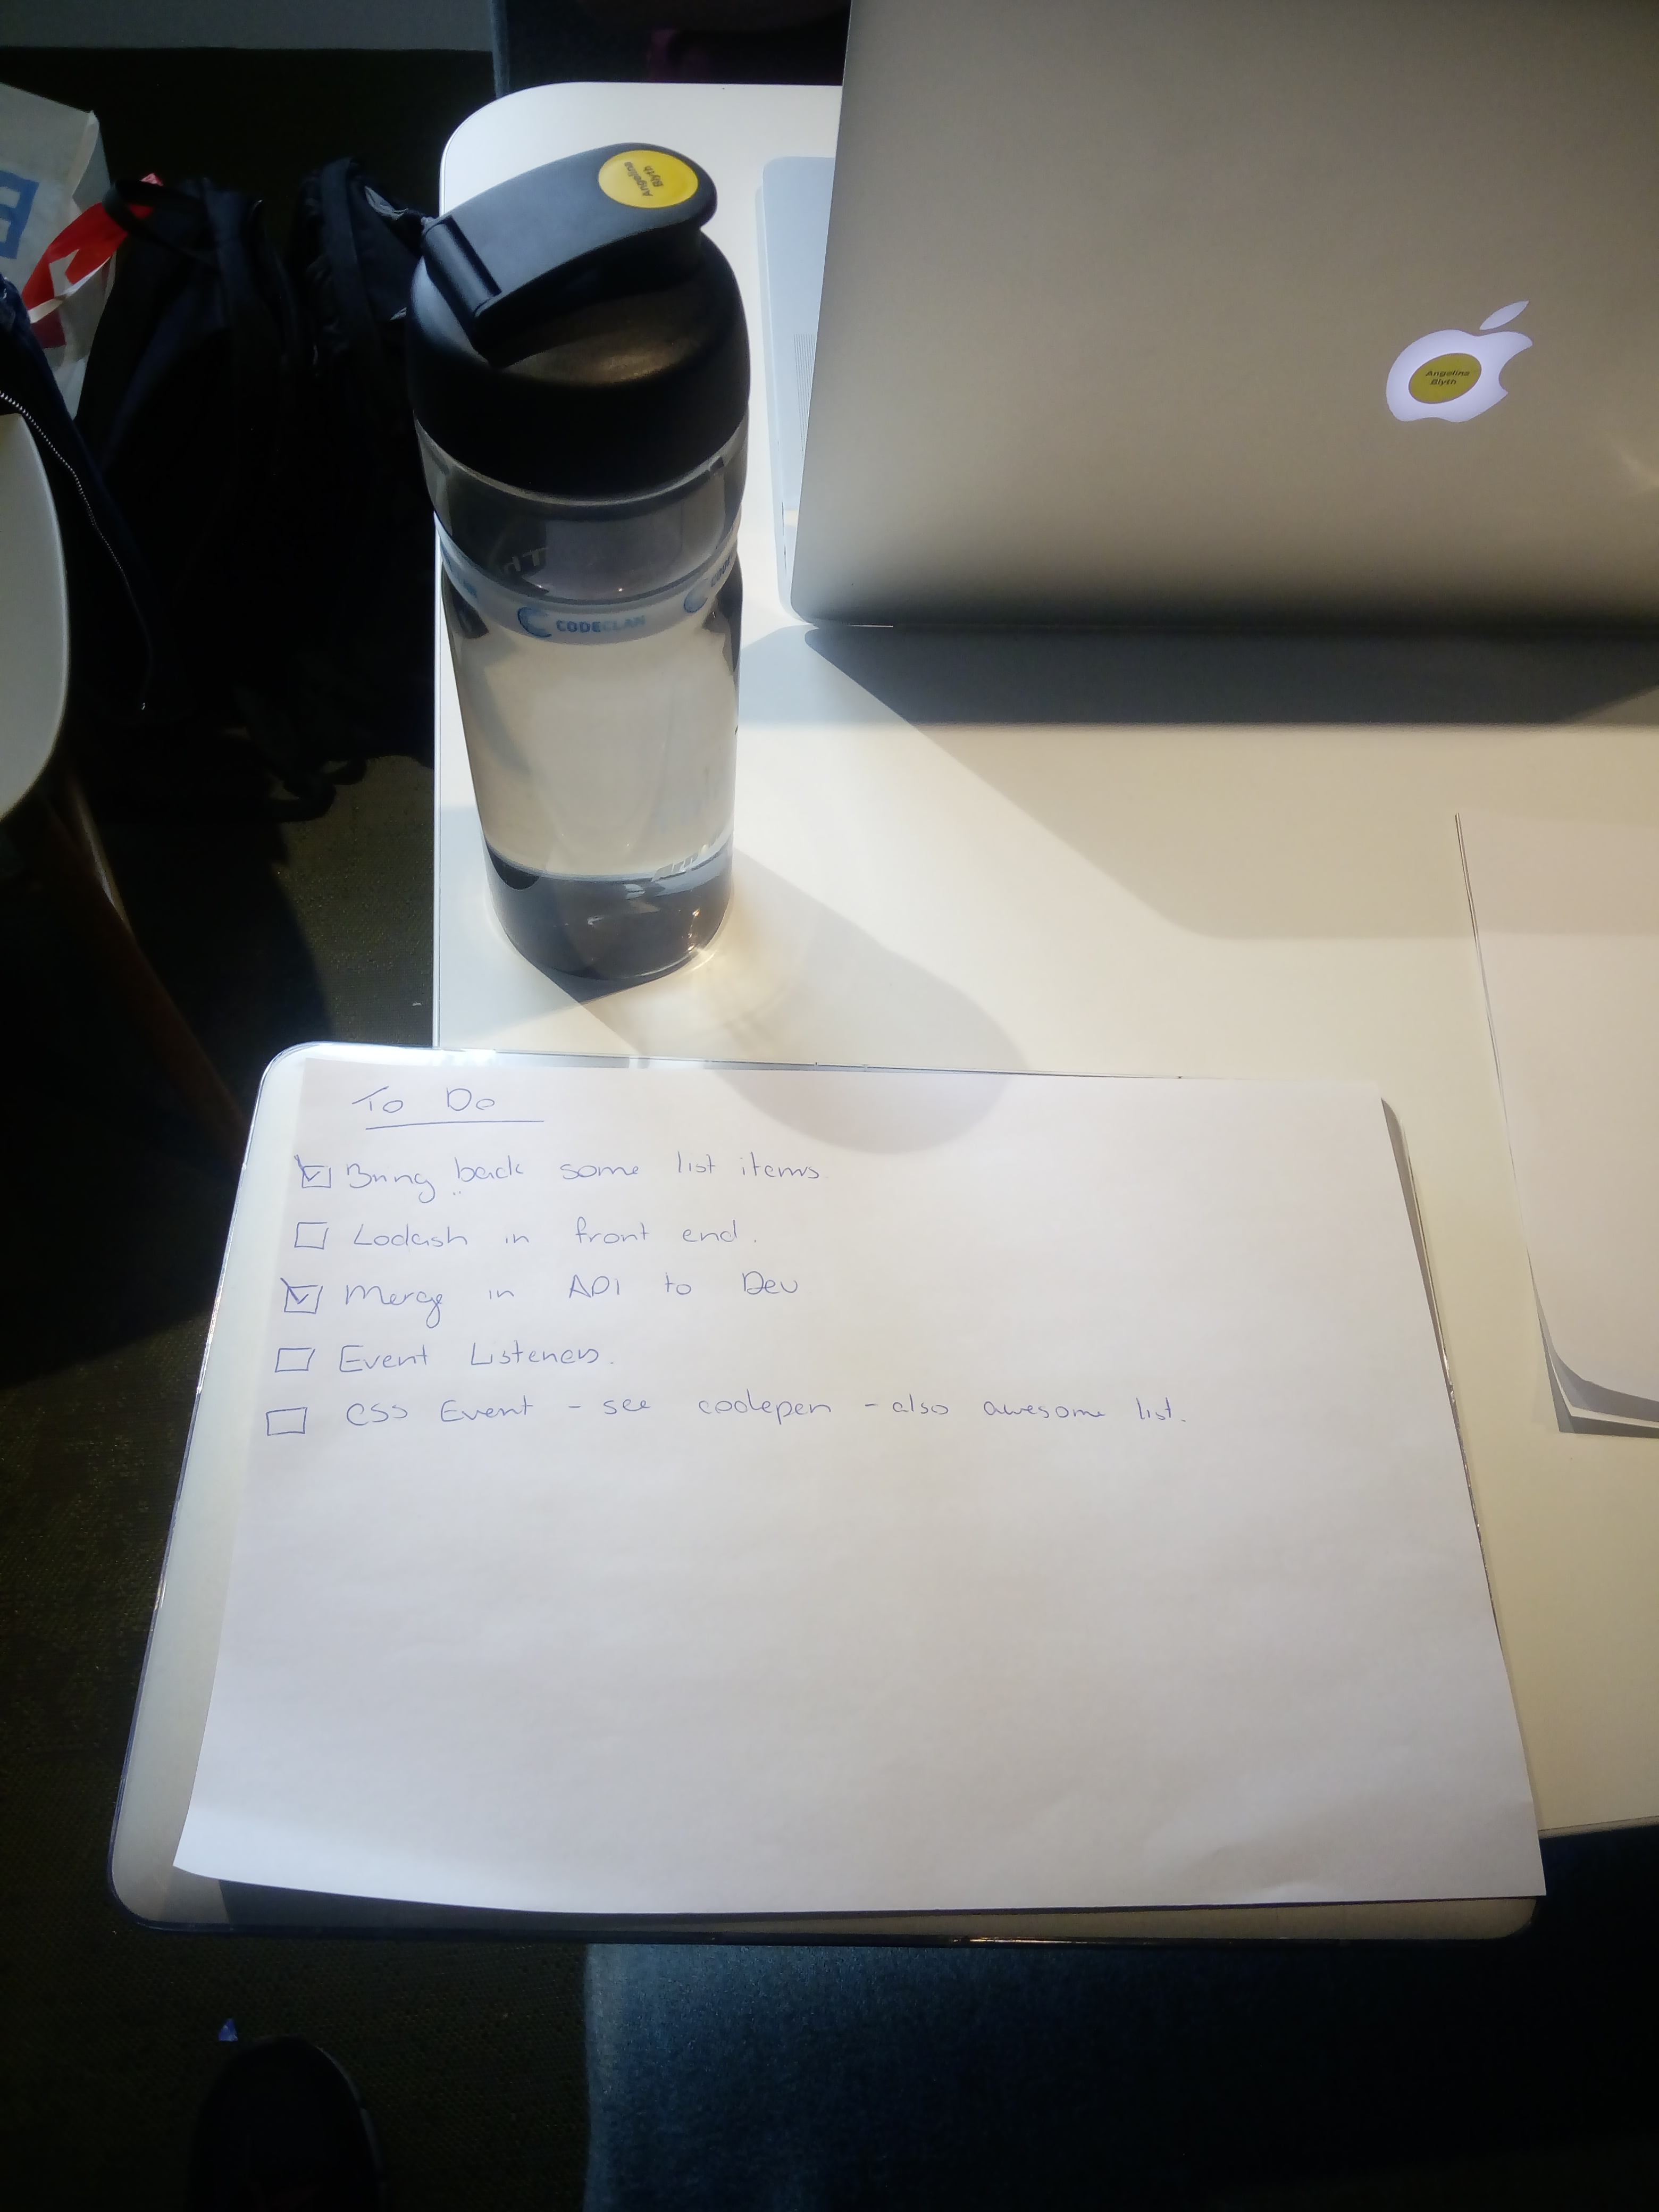 Angelina
Blyth
Angelina
Blyth
CODECLAN
To Do
Bring back some list items.
Lodash in front end.
Merge in API to Dev
Event Listeners.
CSS Event - see codepen - also awesome list.